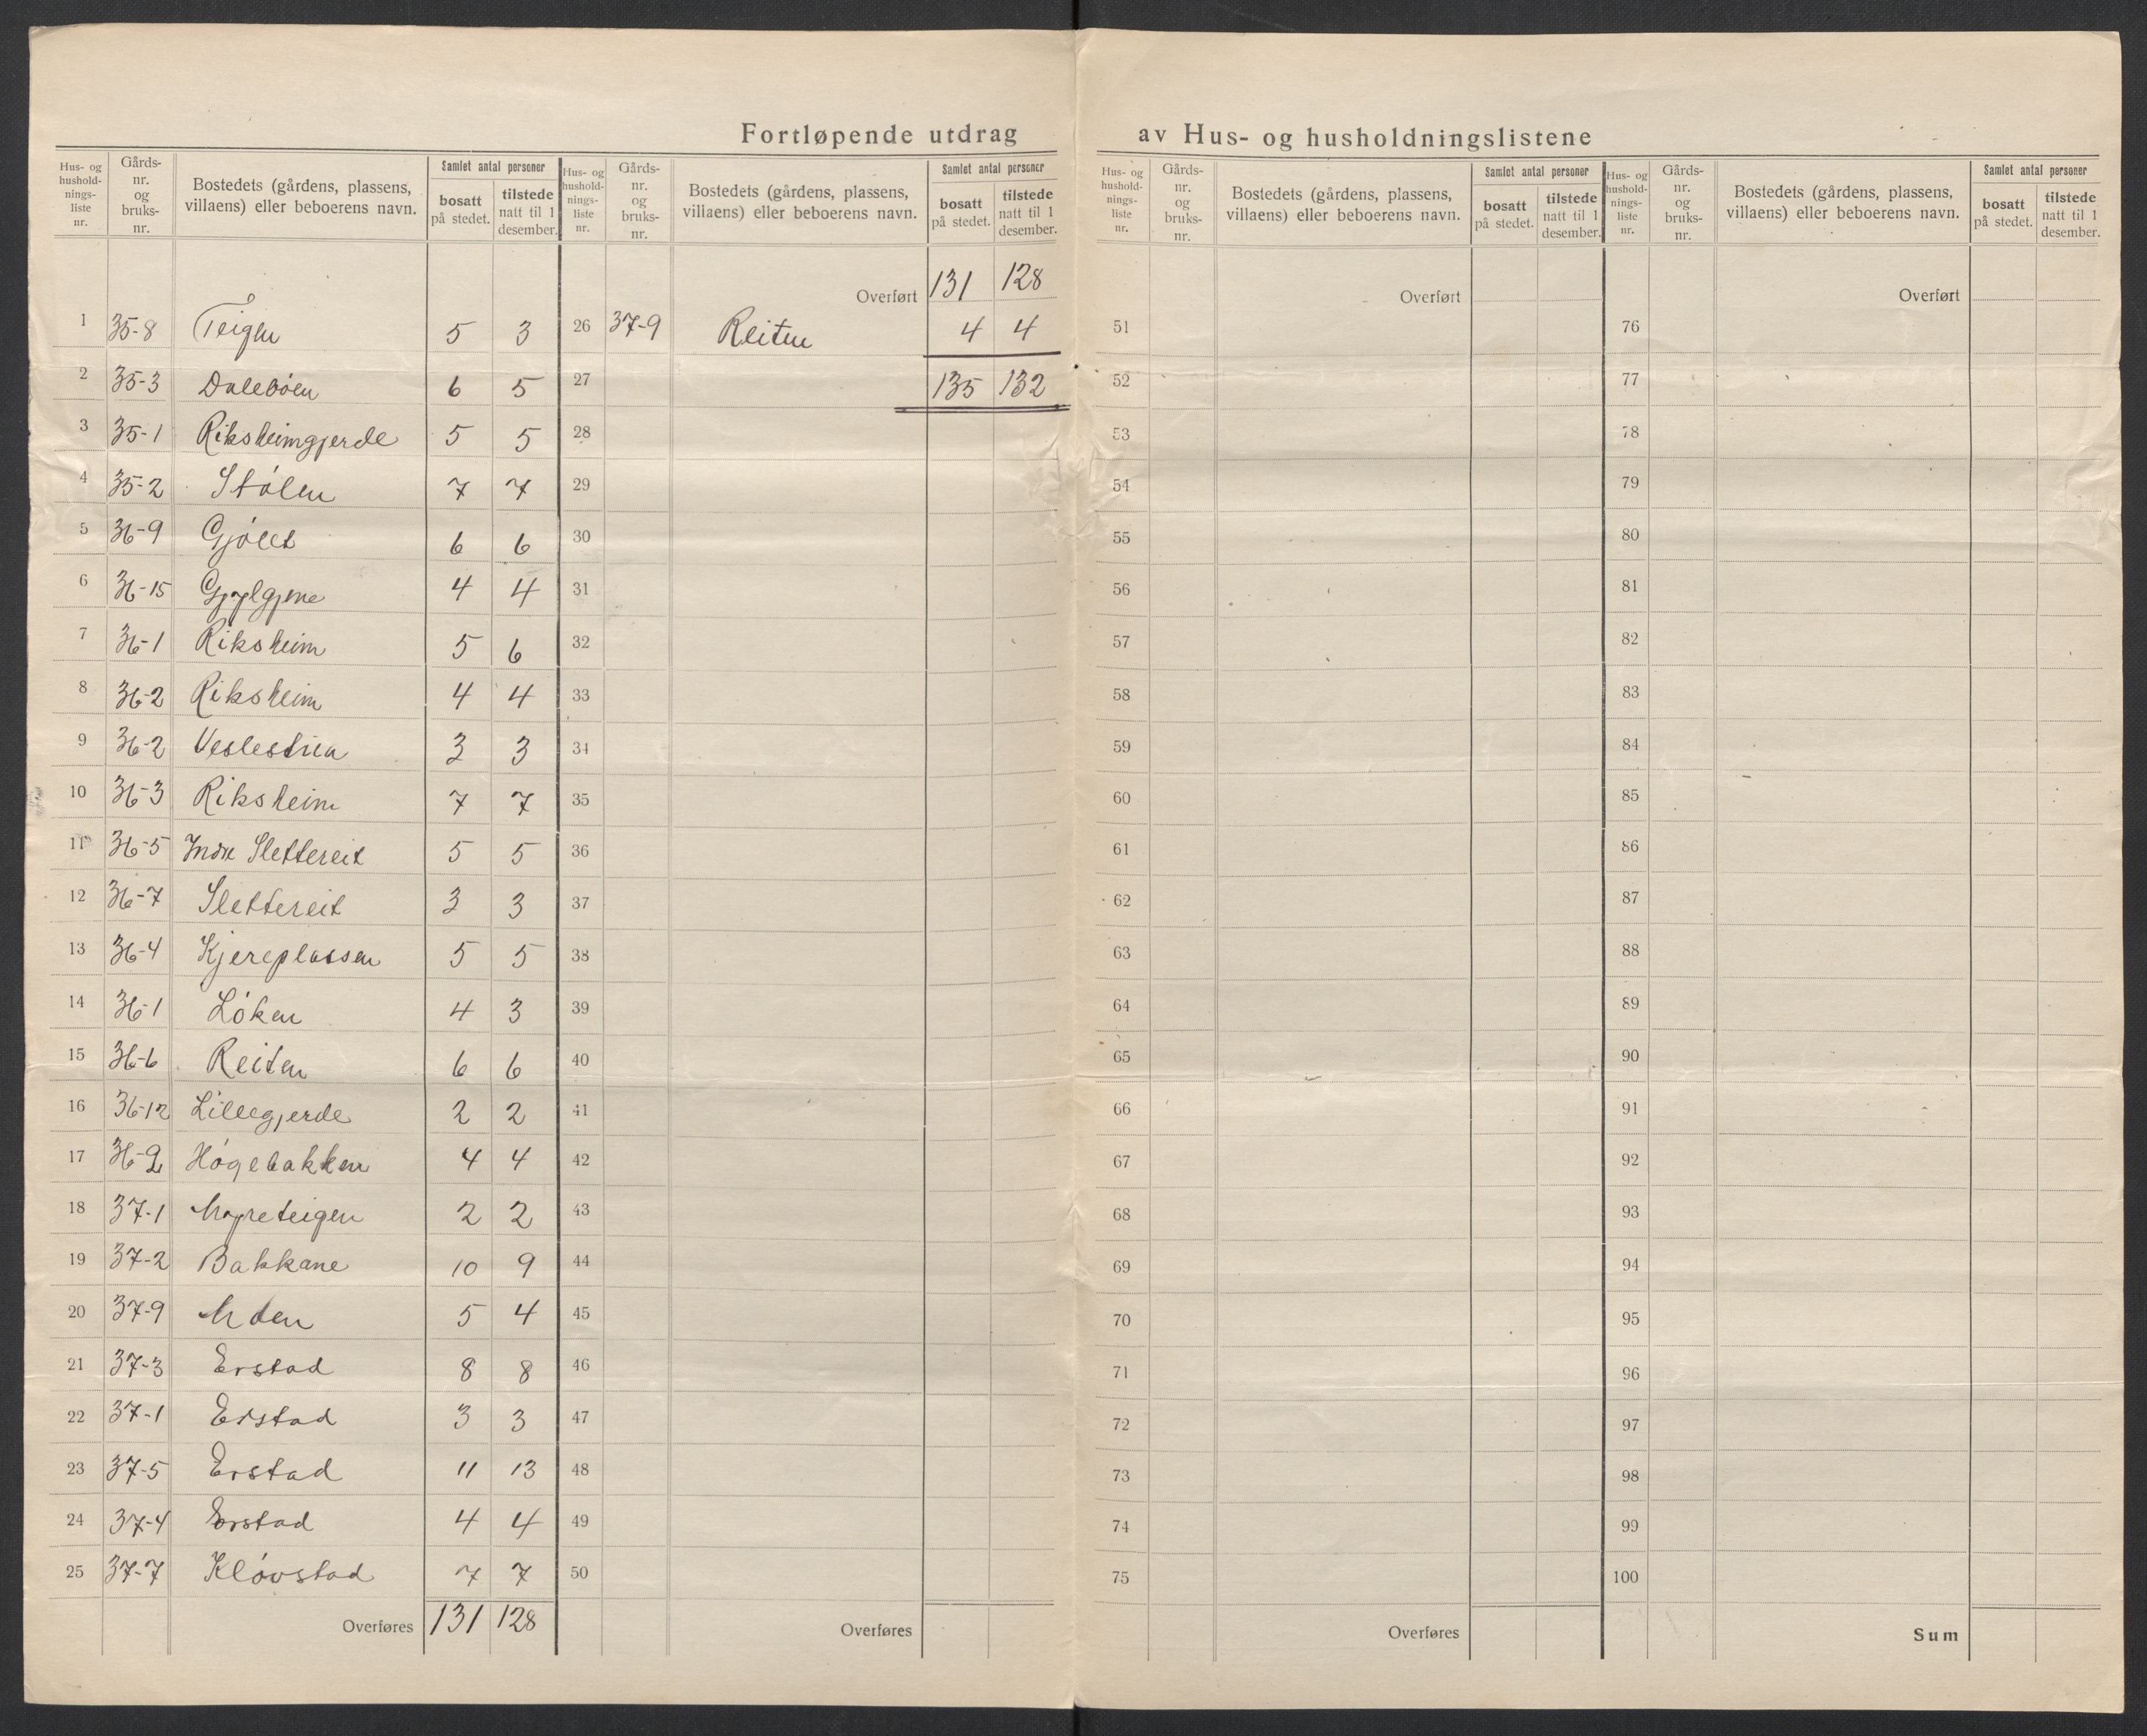 Fortløpende utdrag av Hus- og husholdningslistene
Hus- og hushold-nings-liste nr. Gårds-nr. og bruks-nr. Bostedets (gårdens, plassens, villaens) eller beboerens navn. Samlet antal personer bosatt på stedet. tilstede natt til 1 desember.
1 35-8 Teigen 5 3
2 35-3 Dalebøen 6 5
3 35-1 Riksheimgjerde 5 5
4 35-2 Stølen 7 7
5 36-9 Gjølet 6 6
6 36-15 4 4
7 36-1 Riksheim 5 6
8 36-2 Riksheim 4 4
9 36-2 Veslestua 3 3
10 36-3 Riksheim 7 7
11 36-5 Indre Slettereit 5 5
12 36-7 Slettereit 3 3
13 36-4 Kjereplassen 5 5
14 36-1 Løken 4 3
15 36-6 Reiten 6 6
16 36-12 Lillegjerde 2 2
17 36-2 Høgebakken 4 4
18 37-1 Myreteigen 2 2
19 37-2 Bakkane 10 9
20 37-9 5 4
21 37-3 Erstad 8 8
22 37-1 Erstad 3 3
23 37-5 Erstad 11 13
24 37-4 Erstad 4 4
25 37-7 Kløvstad 7 7
Overføres 131 128
Hus- og hushold-nings-liste nr. Gårds-nr. og bruks-nr. Bostedets (gårdens, plassens, villaens) eller beboerens navn. Samlet antal personer bosatt på stedet. tilstede natt til 1 desember.
Overført 131 128
26 37-9 Reiten 4 4
27 135 132
28
29
30
31
32
33
34
35
36
37
38
39
40
41
42
43
44
45
46
47
48
49
50
Overføres
Hus- og hushold-nings-liste nr. Gårds-nr. og bruks-nr. Bostedets (gårdens, plassens, villaens) eller beboerens navn. Samlet antal personer bosatt på stedet. tilstede natt til 1 desember.
Overført
51
52
53
54
55
56
57
58
59
60
61
62
63
64
65
66
67
68
69
70
71
72
73
74
75
Overføres
Hus- og hushold-nings-liste nr. Gårds-nr. og bruks-nr. Bostedets (gårdens, plassens, villaens) eller beboerens navn. Samlet antal personer bosatt på stedet. tilstede natt til 1 desember.
Overført
76
77
78
79
80
81
82
83
84
85
86
87
88
89
90
91
92
93
94
95
96
97
98
99
100
Sum